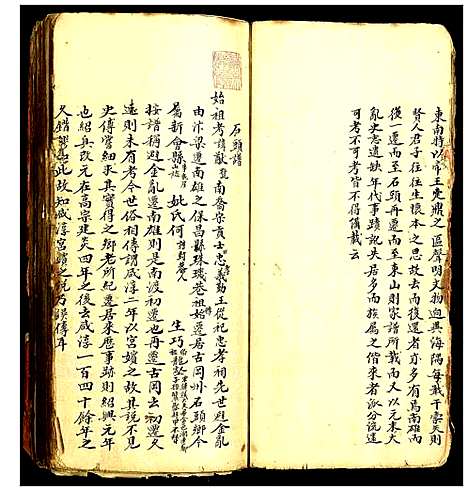 東南特以帝王定鼎之區聲明文物迥與海隅每載干霄天則
賢人君子往往懷本之思故去而復還者亦多有焉南雄而
後一遷而至石頭再遷而至東山則家譜所載而人以元末大
亂史志遺缺年代事蹟說失居多而族屬之偕來者派分流遠
可考不可考皆不得備載云
石頭譜
始祖考諱猷登南喬宗貢士忠義勤王從祀忠孝祠先世避金亂
由汴梁遷南雄之保昌縣珠璣巷祖始遷居古岡州石頭鄉今
屬新會縣 姓氏何 生巧
按譜稱避金亂遷南雄則是南渡初遷也再遷古岡云初遷久
遠則未有考今世俗相傳謂咸淳二年以宮嬪之故其說不見
史傳嘗細求其實得之鄉老所紀遷居來歷事跡則紹興元年
也紹興改元在高宗建炎四年之後去咸淳一百四十餘年之
久錯謬如此故知咸淳宮嬪之說乃誤傳耳